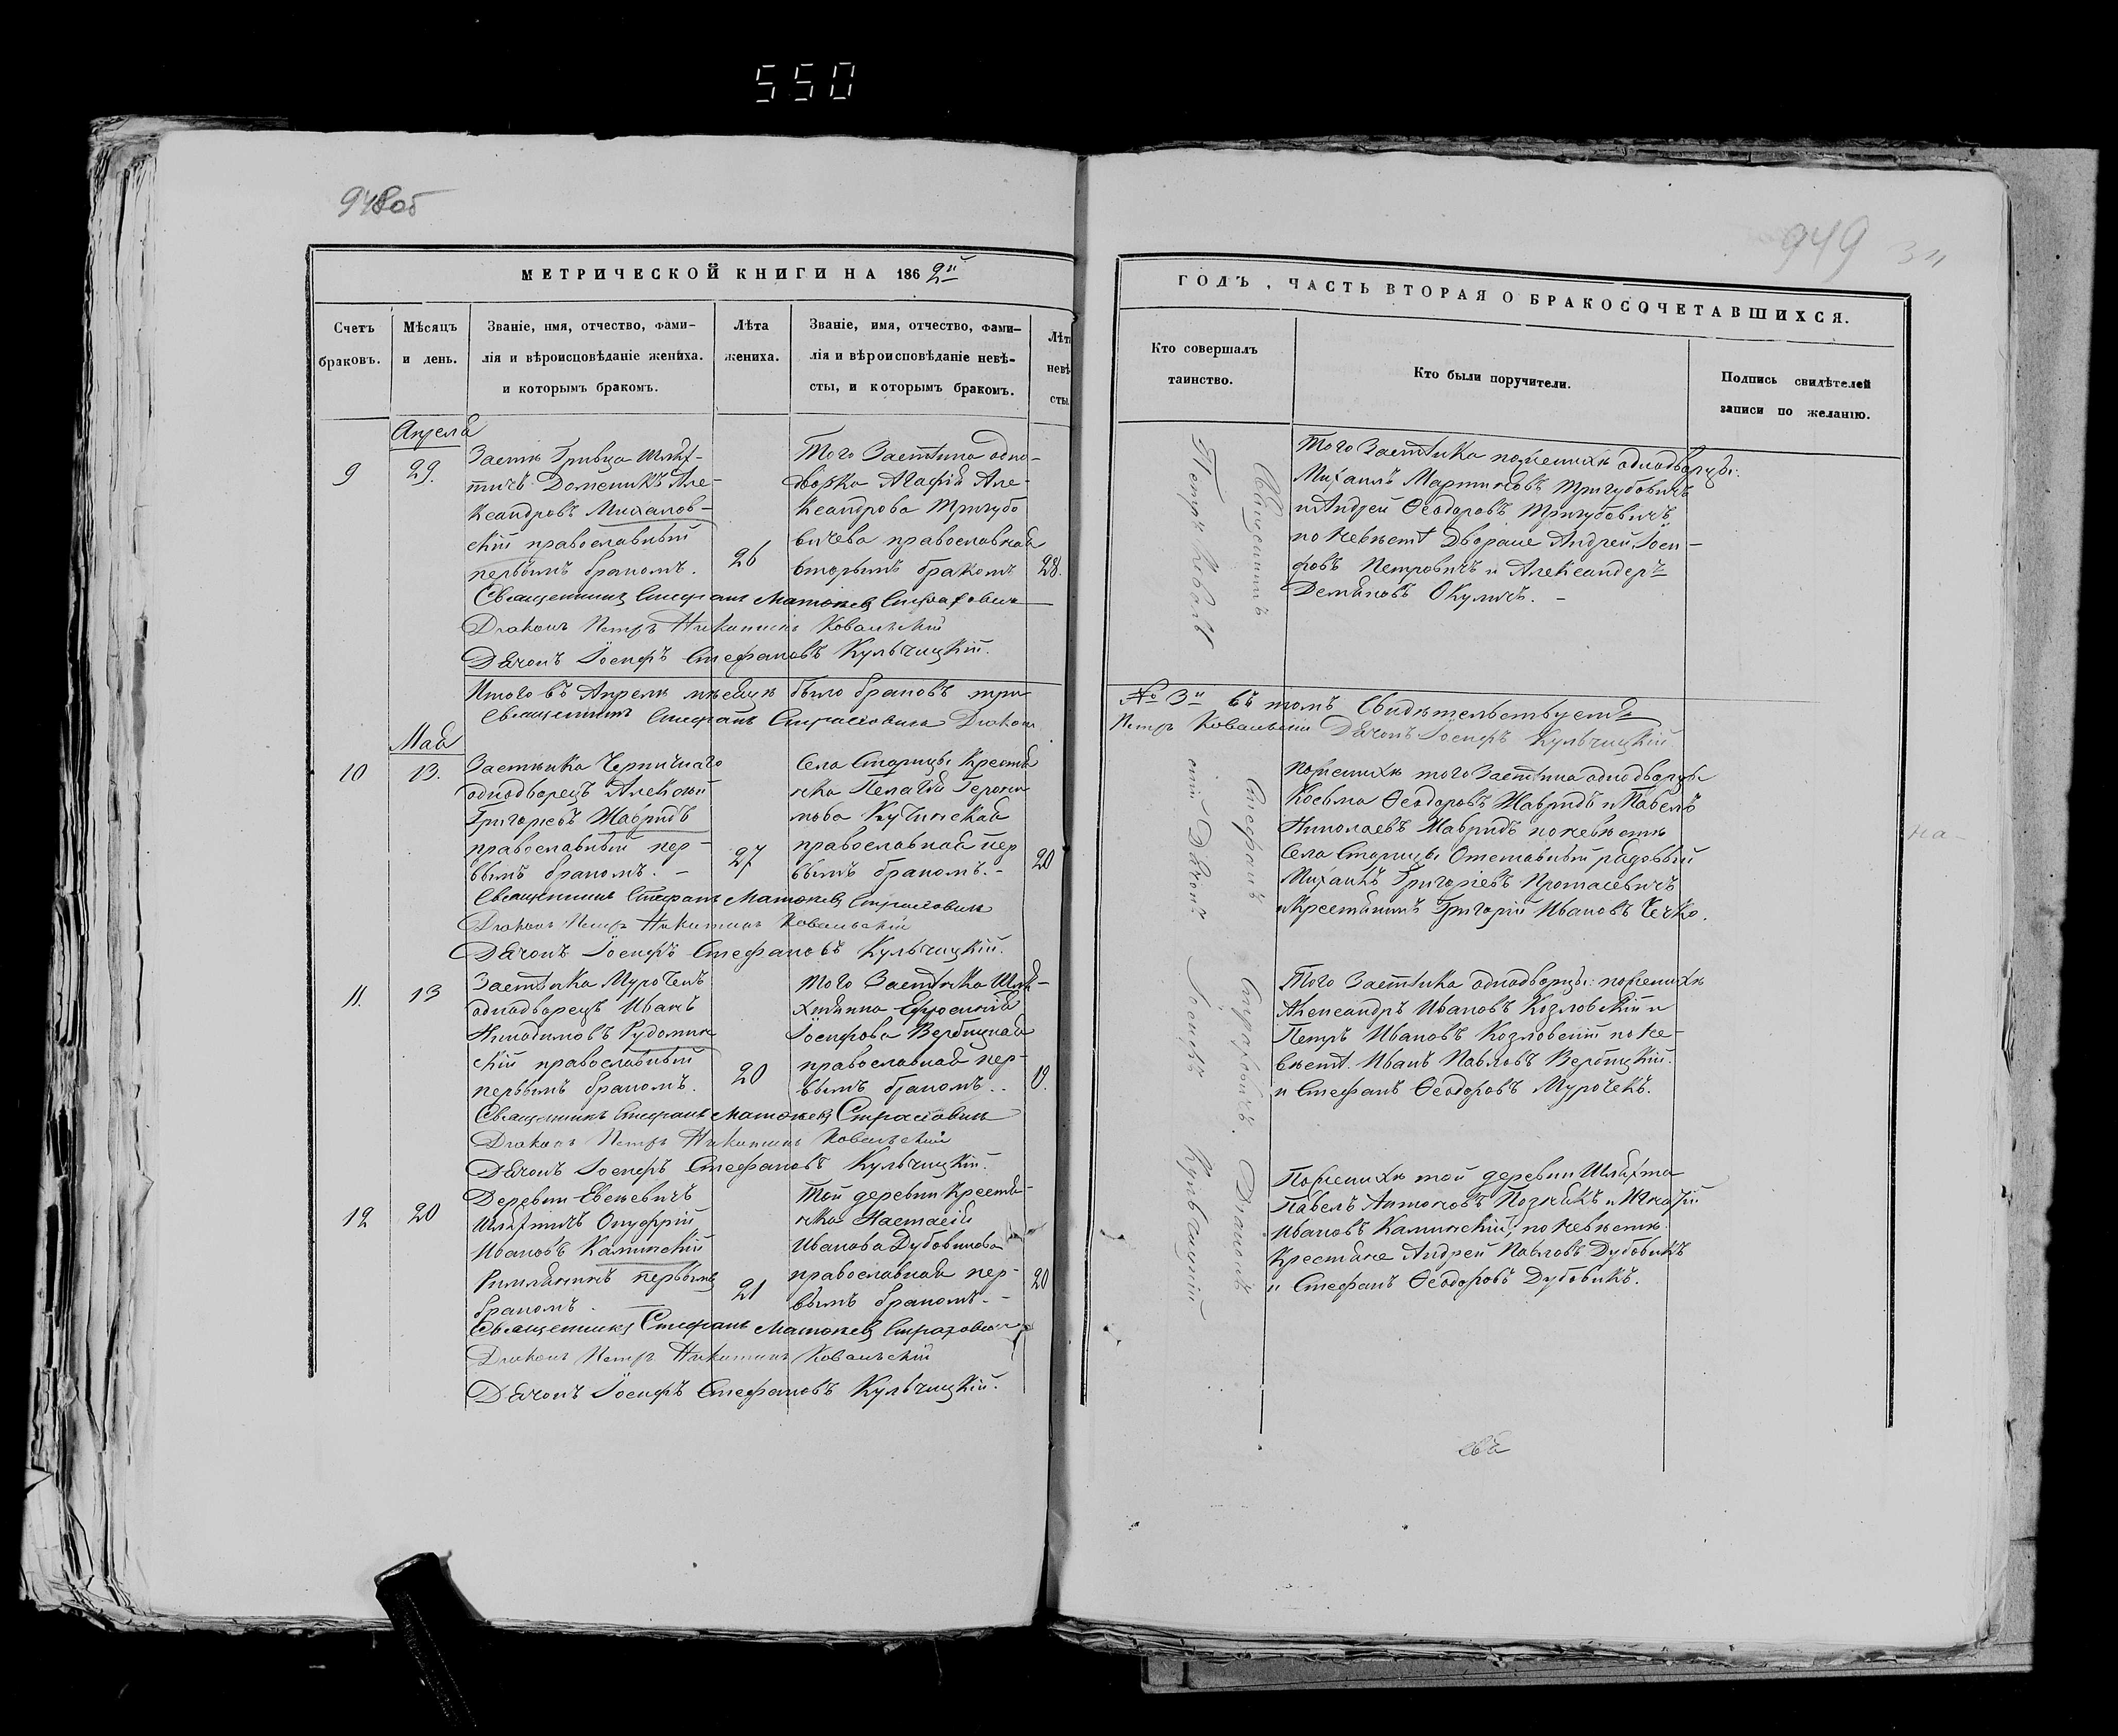 550
948об
МЕТРИЧЕСКОЙ КНИГИ НА 1862й
Счетъ браковъ.
Мѣсяцъ и день.
Званіе, имя, отчество, фами-
лія и вѣроисповѣданіе жениха.
и которымъ бракомъ.
Лѣта жениха.
Званіе, имя, отчество, фами-
лія и вѣроисповѣданіе невѣ-
сты, и которымъ бракомъ.
Лѣт
невѣ
сты
Апреля
9
29.
Шлях-
тичь Доменикъ Але-
ксандровъ Михалов-
скій православный
первымъ бракомъ.
26
Того Застѣнка одно-
дворка Агафія Але-
ксандрова Тригубо
вичева православная
вторымъ бракомъ
28.
Священникъ Стефанъ Матѳеевъ Страховичъ
Діаконъ Петръ Никитинъ Ковальскій
Дьячокъ Іосифъ Стефановъ Кульчицкій.
Итого въ Апрелѣ мѣсяцѣ было браковъ три
Священникъ Стефанъ Страховичъ Діаконъ
Мая
10
13.
Застѣнка
однодворецъ Алексѣй
Григоріевъ Мавридъ
православный пер-
вымъ бракомъ. -
27
Села Старицы Крестья
нка Пелагія Герони
мова Кучинская
православная пер
вымъ бракомъ. -
20
Священникъ Стефанъ Матѳеевъ Страховичъ
Діаконъ Петръ Никитинъ Ковальскій
Дьячокъ Іосифъ Стефановъ Кульчицкій.
11.
13
Застѣнка Мурочекъ
однодворецъ Иванъ
Никодимовъ Рудомин
скій православный
первымъ бракомъ.
20
Того Застѣнка Шля-
хтянка Ефросинія
Іосифова Вербицкая
православная пер-
вымъ бракомъ..
Священникъ Стефанъ Матѳеевъ Страховичъ
Діаконъ Петръ Никитинъ Ковальскій
Дьячокъ Іосифъ Стефановъ Кульчицкій.
12
20
Деревни Евсеевичъ
Шляхтичъ Онуфрій
Ивановъ Каминскій
Римлянинъ первымъ
бракомъ.
21
Той деревни Крестья-
нка Настасія
Иванова Дубовикова
православная пер-
вымъ бракомъ. -
20
Священникъ Стефанъ Матѳеевъ Страховичъ
Діаконъ Петръ Никитинъ Ковальскій
Дьячокъ Іосифъ Стефановъ Кульчицкій.
949
ГОДЪ, ЧАСТЬ ВТОРАЯ О БРАКОСОЧЕТАВШИХСЯ.
Кто совершалъ
таинство.
Кто были поручители.
Подпись свидѣтелей
записи по желанію.
Священникъ Стефанъ Страховичъ. Діаконъ
Петръ Ковальскій Дьячокъ Іосифъ Кульчицкій
Того Застѣнка по женихѣ однодворцы:
Михаилъ Мартиновъ Тригубовичъ
и Андрей Ѳеодоровъ Тригубовичъ
по невѣстѣ Дворяне Андрей Іоси-
фовъ Петровичъ и Александеръ
Демьяновъ Окуличъ. -
№ 3й въ томъ свидѣтельствуемъ
Петръ Ковальскій Дьячокъ Іосифъ Кульчицкій
По женихѣ того Застѣнка однодворцы
Косьма Ѳеодоровъ Мавридъ и Павелъ
Николаевъ Мавридъ по невѣстѣ
Села Старицы Отставный рядовый
Михаилъ Григоріевъ Протасевичъ
и Крестьянинъ Григорій Ивановъ Чечко.
Того Застѣнка однодворцы: по женихѣ
Александръ Ивановъ Козловскій и
Петръ Ивановъ Козловскій по не-
вѣстѣ Иванъ Павловъ Вербицкій.
и Стефанъ Ѳеодоровъ Мурочекъ.
По женихѣ той деревни Шляхта
Павелъ Антоновъ Познякъ и Игнатій
Ивановъ Каминскій; по невѣстѣ.
Крестьяне Андрей Павловъ Дубовикъ
и Стефанъ Ѳеодоровъ Дубовикъ.